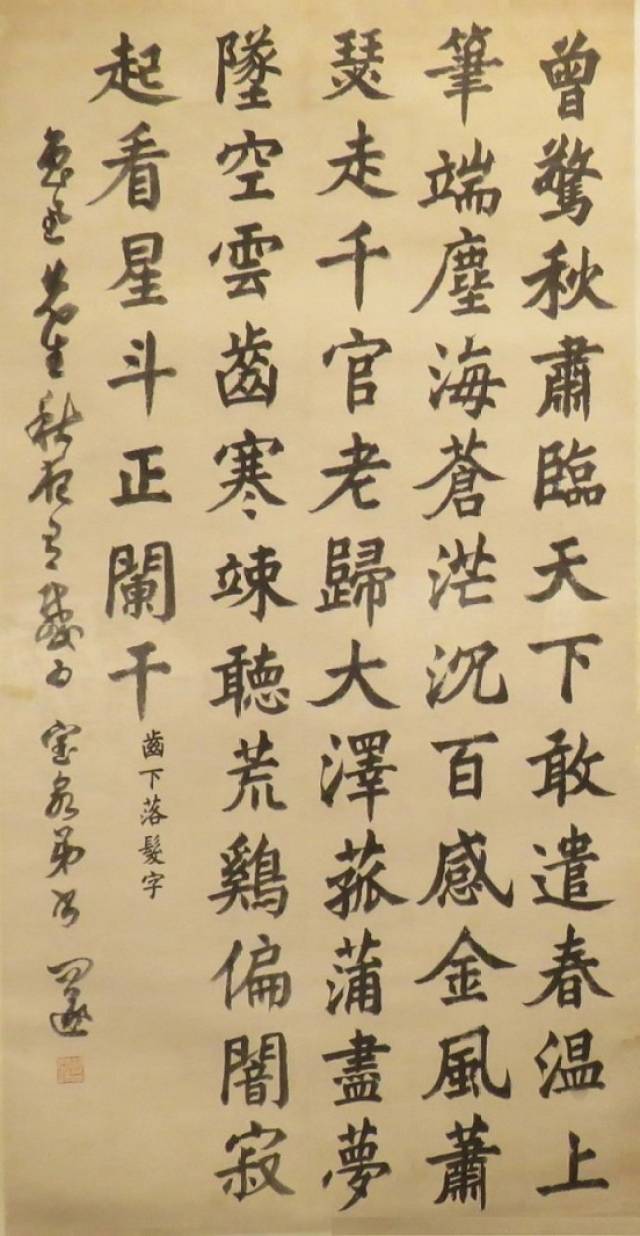 曾驚秋肅臨天下敢遣春温上
筆端塵海蒼茫沉百感金風蕭
瑟走千官老歸大澤菰蒲盡夢
墜空雲齒寒竦聽荒鷄偏闇寂
起看星斗正闌干
齒下落髮字
先生秋夜有感 弟